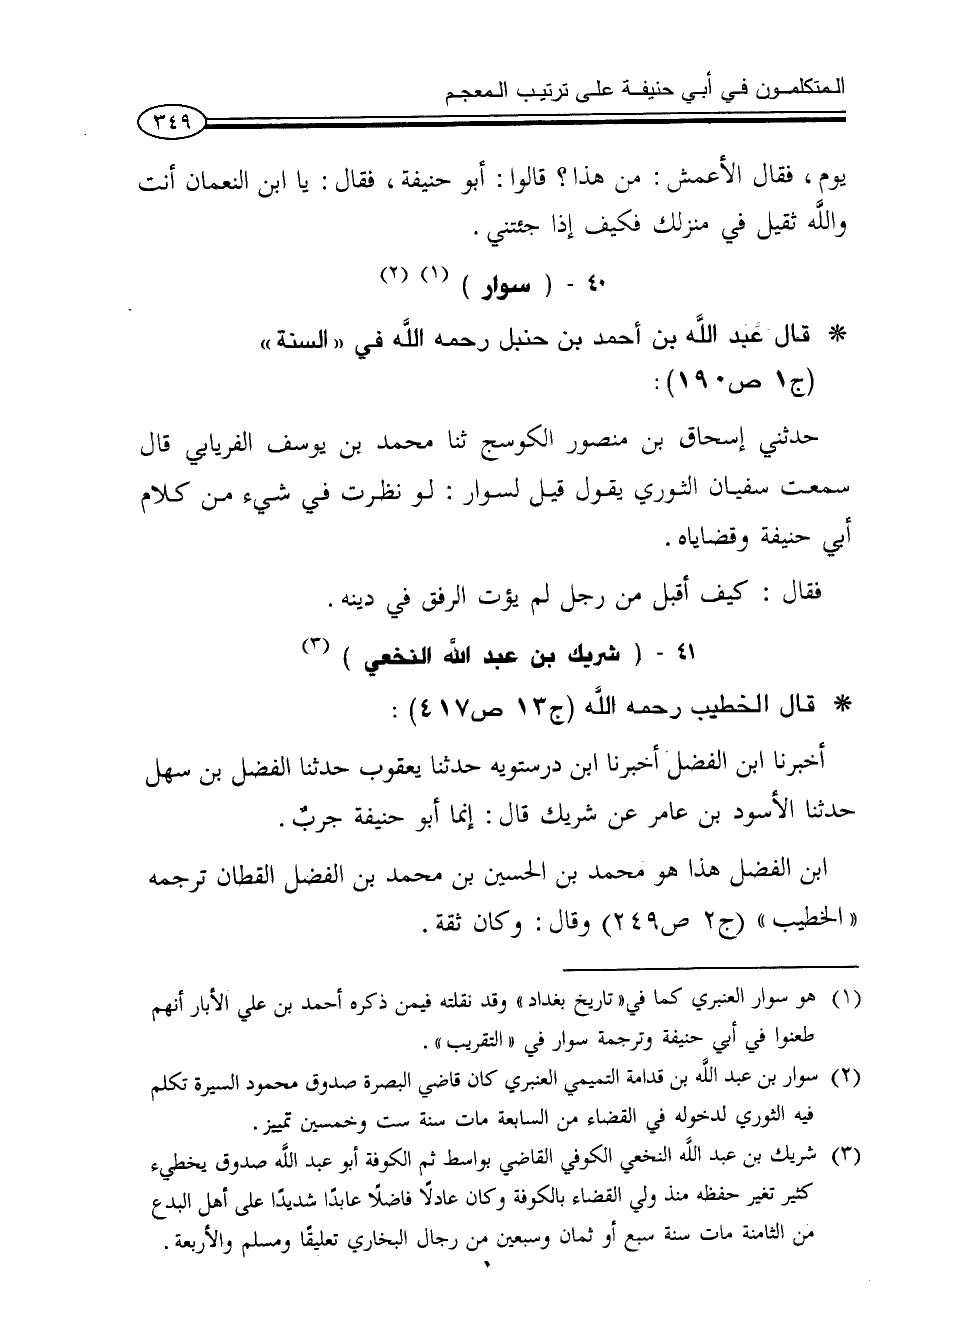 المتكلمون في أبي حنيفة على ترتيب المعجم
٣٤٩
يوم ، فقال الأعمش : من هذا ؟ قالوا : أبو حنيفة ، فقال : يا ابن النعمان أنت
واللَّه ثقيل في منزلك فكيف إذا جئتني .
٤٠ - ( سوار ) (١) (٢)
* قال عبد اللَّه بن أحمد بن حنبل رحمه اللَّه في «السنة»
(ج١ ص١٩٠) :
حدثني إسحاق بن منصور الكوسج ثنا محمد بن يوسف الفريابي قال
سمعت سفيان الثوري يقول قيل لسوار : لو نظرت في شيء من كلام
أبي حنيفة وقضاياه .
فقال : كيف أقبل من رجل لم يؤت الرفق في دينه .
٤١ - ( شريك بن عبد اللَّه النخعي ) (٣)
* قال الخطيب رحمه اللَّه (ج١٣ ص٤١٧) :
أخبرنا ابن الفضل أخبرنا ابن درستويه حدثنا يعقوب حدثنا الفضل بن سهل
حدثنا الأسود بن عامر عن شريك قال : إنما أبو حنيفة جربٌ .
ابن الفضل هذا هو محمد بن الحسين بن محمد بن الفضل القطان ترجمه
«الخطيب» (ج٢ ص٢٤٩) وقال : وكان ثقة .
(١) هو سوار العنبري كما في «تاريخ بغداد» وقد نقلته فيمن ذكره أحمد بن علي الأبار أنهم
طعنوا في أبي حنيفة وترجمة سوار في «التقريب» .
(٢) سوار بن عبد اللَّه بن قدامة التميمي العنبري كان قاضي البصرة صدوق محمود السيرة تكلم
فيه الثوري لدخوله في القضاء من السابعة مات سنة ست وخمسين تمييز .
(٣) شريك بن عبد اللَّه النخعي الكوفي القاضي بواسط ثم الكوفة أبو عبد اللَّه صدوق يخطيء
كثير تغير حفظه منذ ولي القضاء بالكوفة وكان عادلًا فاضلًا عابدًا شديدًا على أهل البدع
من الثامنة مات سنة سبع أو ثمان وسبعين من رجال البخاري تعليقًا ومسلم والأربعة .